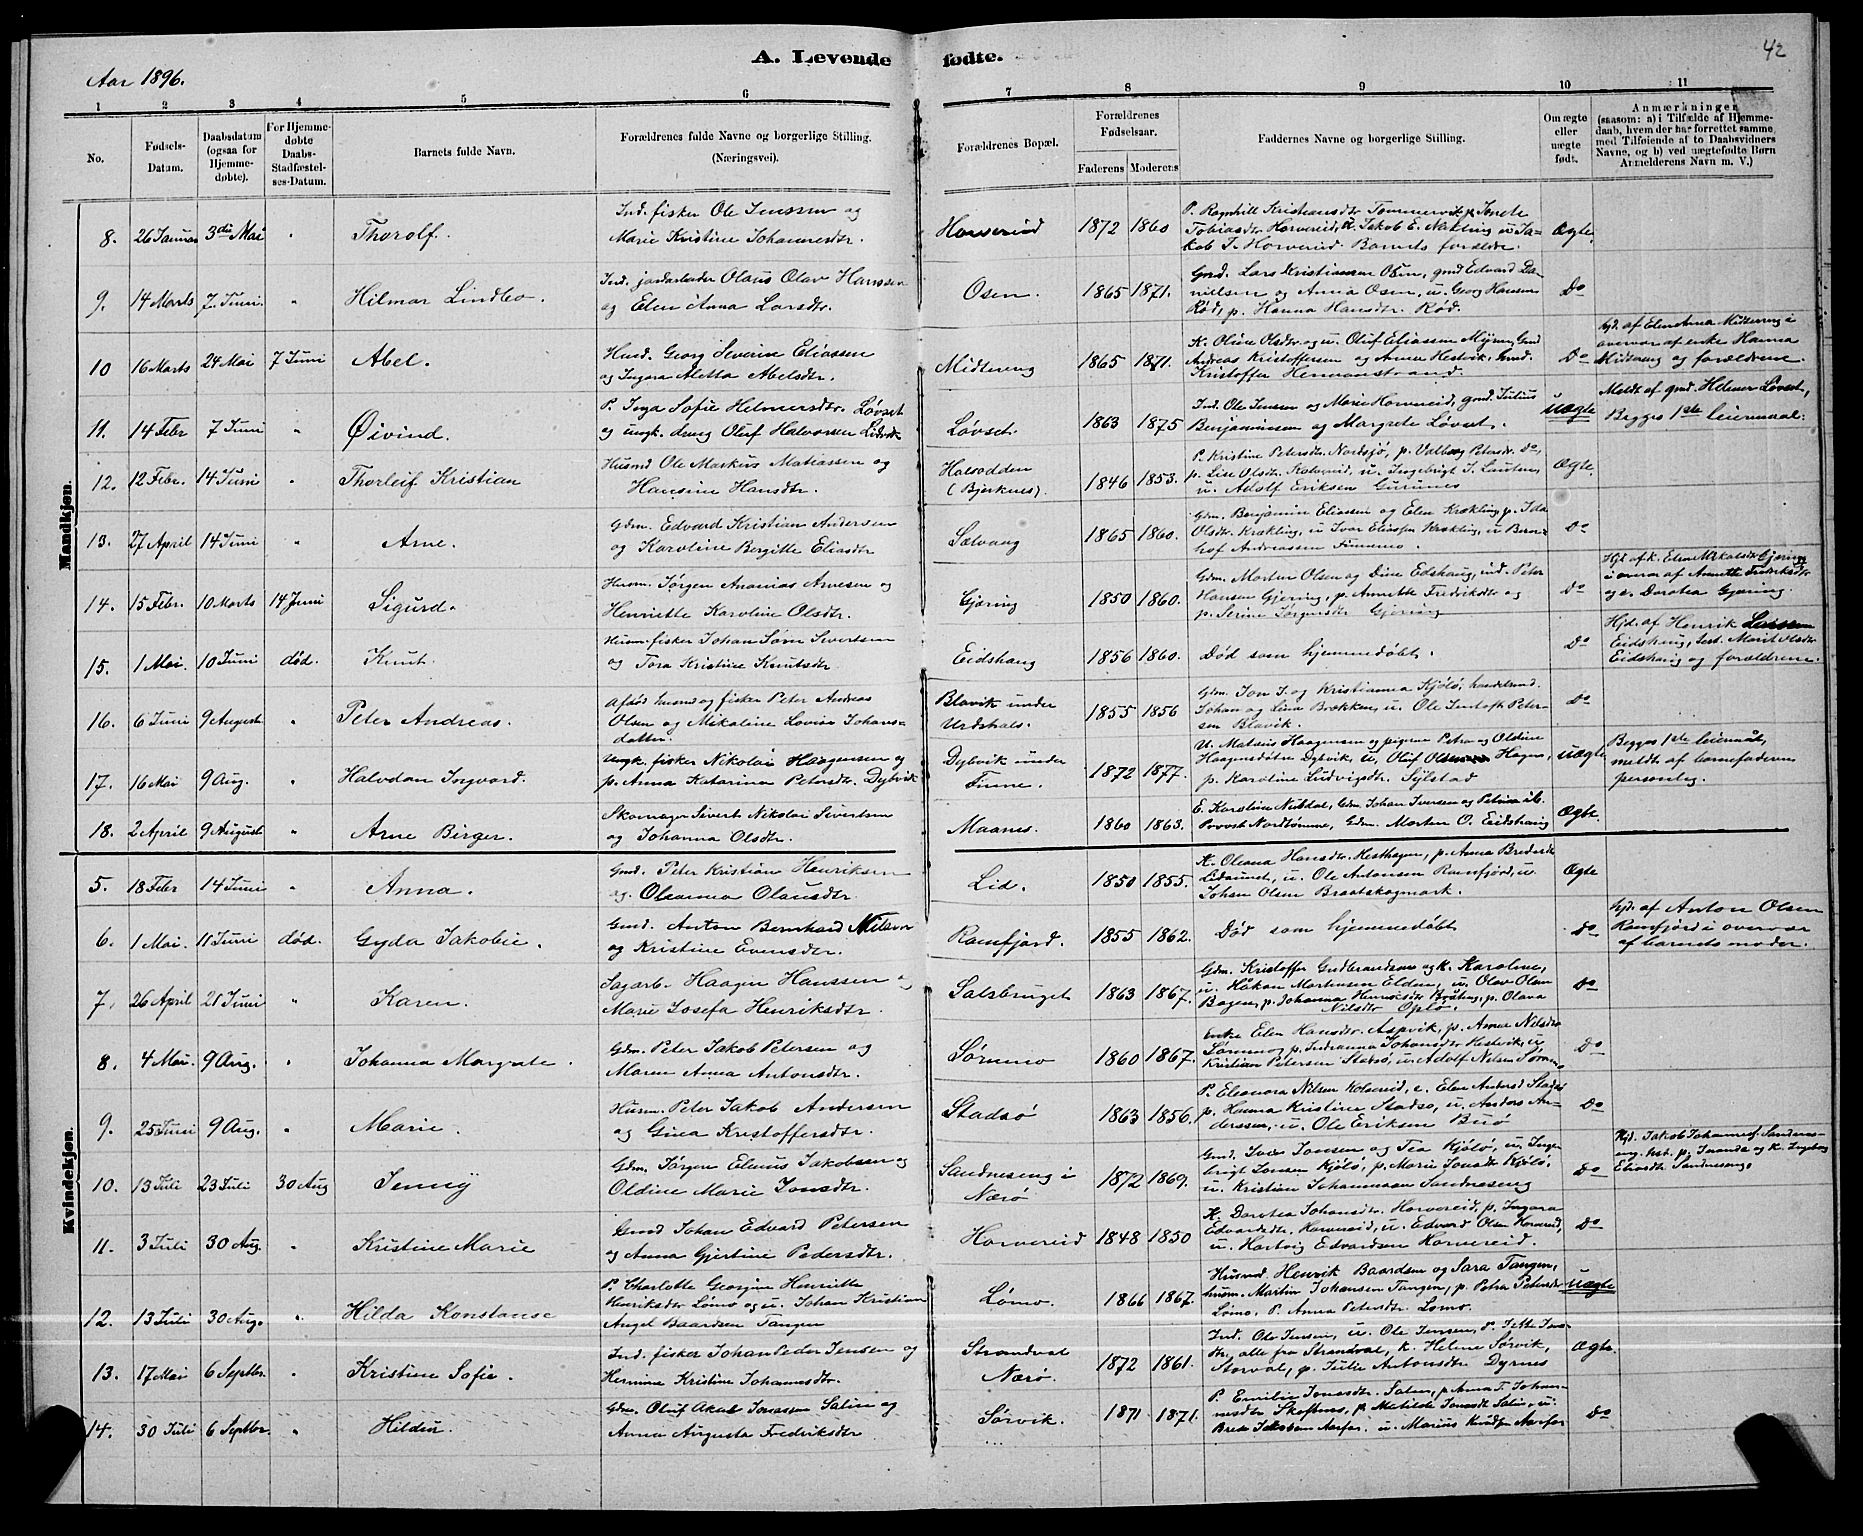 Aar 1896.
A. Levende fødte.
42
1 2 3 4 5 6 7 8 9 10 11
No.
Fødsels-
Datum.
Daabsdatum
(ogsaa for
Hjemme-
døbte).
For Hjemme-
døbte
Daabs-
Stadfæstel-
ses-Datum.
Barnets fulde Navn.
Forældrenes fulde Navne og borgerlige Stilling.
(Næringsvei).
Forældrenes Bopæl.
Forældrenes
Fødselsaar.
Faderens Moderens
Faddernes Navne og borgerlige Stilling.
Om ægte
eller
uægte
født.
Anmærkninger
(saasom: a) i Tilfælde af Hjemme-
daab, hvem der har forrettet samme,
med Tilføiende af to Daabsvidners
Navne, og b) ved uægtefødte Børn
Anmelderens Navn m. V.)
Mandkjøn.
8. 26 Januar 3die Mai " Thorolf.
Ind. fisker Ole Jenssen og
Marie Kristine Johannesdtr.
Horvereid 1872 1860
P. Ragnhill Kristiansdtr Tommervik, p. Jonete
Tobiasdtr Horvereid, u. Jakob E. Nækling u. Ja-
kob J. Horvereid. Barnets forældre.
Ægte.
9. 14 Marts 7. Juni " Hilmar Lindbo.
Ind. jordarbeider Olaus Olav Hanssen
og Elen Anna Larsdtr.
Osen. 1865 1871.
Gmd. Lars Kristiansen Osen, gmd Edvard Da-
nielsen og Anna Osen, u. Georg Hansen
Rød, p. Hanna Hansdtr. Rød.
Do
10 16 Marts 24 Mai 7 Juni Abel.
Husd. Georg Severine Eliassen
og Ingara Aletta Abelsdtr.
Midtereng 1865 1871.
K. Oline Olsdtr og u. Oluf Eliassen Myren, Gmd
Andreas Kristoffersen og Anna Hestvik, Gmd.
Kristoffer Hermanstrand.
Do
hjd. af Elen Anna Midtereng i
overvær af enke Hanna
Midtereng og forældrene.
11. 14 Febr 7 Juni " Øivind.
P. Inga Sofie Helmersdtr. Løvset
og ungk. dreng Oluf Halvorsen
Løvset. 1863 1875
Ind. Ole Jensen og Marie Horvereid, gmd. Julius
Benjaminsen og Margrete Løvset.
uægte
Meldt af gmd. Helmer Løvset,
Begges 1ste leiermaal.
12. 12 Febr. 14 Juni " Thorleif Kristian
Husmd Ole Markus Matiassen og
Hansine Hansdtr.
Halsodden
(Bjerknes). 1846 1853.
P. Kristine Petersdtr. Nordsjø, p. Valborg Petersdtr. Do,
p. Lise Olsdtr. Kolvereid, u. Ingebrigt J.
u. Adolf Eriksen
Ægte.
13. 27 April 14 Juni " Arne.
Gdm. Edvard Kristian Andersen
og Karoline Bergitte Eliasdtr
Sælvaag 1865 1860.
Gdm. Benjamin Eliassen og Elen Krækling, p. Ida
Olsdtr. Krækling, u Ivar Eliassen Krækling, u Bern-
hof Andreassen Finnemo.
Do
14. 15 Febr. 10 Marts 14 Juni Sigurd.
Husm. Jørgen Ananias Arnesen og
Henriette Karoline Olsdtr.
Gjæring 1850 1860.
Gdm. Morten Olsen og Dine Edshaug, ind. Peter
Hansen Gjering, p. Annette Fredriksdtr og
p. Serine Jørgensdtr Gjering
Do
Hjd. af k. Elen Mikalsdtr Gjæring
i overv. af Annette Fredriksdtr
og e. Dorotea Gjæring.
15. 1 Mai 10 Juni død. Knut.
Husm. fisker Johan Sørn Sivertsen
og Tora Kristine Knutsdtr.
Eidshaug 1856 1860.
Død som hjemmedøbt.
Do
Hjd. af Henrik Larssen
Eidshaug, test. Marit Olsdtr
Eidshaug og forældrene.
16. 6 Juni 9 August " Peter Andreas.
Afdød husmd og fisker Peter Andreas
Olsen og Mikaline Lovise Johans-
datter.
Blavik under
Urdshals. 1855 1856
Gdm. Jon J. og Kristianna Kjølø, handelsmd.
Johan og Line Brækken, u. Ole Jentoft Peter-
sen Blavik.
Do
17. 16 Mai 9 Aug. " Halvdan Ingvard.
Ungk. fisker Nikolai Haagensen og
p. Anna Katarina Petersdtr. Dybvik
Dybvik under
Finne. 1872 1877.
U. Matæus Haagensen og pigerne Petra og Oldine
Haagensdøtre Dybvik, u. Oluf Olsen Hagen,
p. Karoline Ludvigsdtr. Sylstad
uægte
Begges 1ste leiermaal,
meldt af barnefaderen
personlig.
18. 2 April 9 August " Arne Birger.
Skomager Sivert Nikolai Sivertsen
og Johanna Olsdtr.
Maanes. 1860 1863.
E. Karoline Nubdal, Gdm. Johan Iversen og Petrina
Provst Nordtømme, Gdm. Morten O. Eidshaug
Ægte.
Kvindekjøn.
5. 18 Febr 14 Juni " Anna.
Gmd. Peter Kristian Henriksen
og Oleanna Olausdtr.
Lid. 1850 1855.
K. Oleana Hansdtr. Hesthagen, p. Anna Bredesdtr
Lidaunet, u. Ole Antonsen Ramfjord, u.
Johan Olsen Braatskogmark.
Ægte
6. 1 Mai. 11 Juni død. Gyda Jakobie.
Gmd. Anton Bernhard Nilsen
og Kristine Evensdtr.
Ramfjord. 1855 1862.
Død som hjemmedøbt
Do
hjd. af Anton Olsen
Ramfjord i overvær
af barnets moder.
7. 26 April 21 Juni " Karen.
Sagarb. Haagen Hanssen og
Marie Josefa Henriksdtr.
Salsbruget 1863 1867.
Gdm. Kristoffer Gudbrandsen og k. Karoline,
u. Håkon Martinsen Elden, u. Olav Olsen
Bogen, p. Johanna Henriksdtr Bråten, p. Olava
Nilsdtr Oplø.
Do
8. 4 Mai. 9 Aug. " Johanna Margrete.
Gdm. Peter Jakob Petersen og
Maren Anna Antonsdtr.
Sørmmo 1860 1867.
Enke Elen Hansdtr Aspvik, p. Anna Nilsdtr
Sørmmo, p. Indianna Johansdtr Hestvik, u.
Kristian Petersen Stadsø, u. Adolf Nilsen Sørm.
Do
9. 25 Juni 9 Aug. " Marie.
Husm. Peter Jakob Andersen
og Gina Kristoffersdtr.
Stadsø 1863 1856.
P. Eleonora Nilsen Kolvereid, e. Elen Antonsd Stadsø
p. Hanna Kristine Stadsø, u. Anders An-
derssen, u. Ole Eriksen Buø
Do
10. 13 Juli 23 Juli 30 Aug Jenny
Gdm. Jørgen Elenus Jakobsen og
Oldine Marie Jonsdtr.
Sandneseng i
Nærø 1872 1869.
Gmd. Iver Jonsen og Tea Kjølø, u. Inge-
brigt Jonsen Kjølø, p. Marie Jonsdtr Kjølø,
u. Kristian Johannsen Sandneseng
Do
Hjd. Jakob Johannes. Sandnes-
eng, test. p. Jonanda og k. Ingeborg
Eliasdtr Sandneseng.
11. 3 Juli 30 Aug. " Kristine Marie
Gmd Johan Edvard Petersen
og Anna Gjertine Pedersdtr.
Horvereid 1848 1850
K. Dorotea Johansdtr. Horvereid, p. Ingara
Edvardsdtr. Horvereid, u. Edvard Olsen Horvereid,
u. Hartvig Edvardsen Horvereid.
Do
12. 13 Juli 30 Aug. " Hilda Konstanse
P. Charlotte Georgine Henriette
Henriksdtr Lømo og u. Johan Kristian
Angel Baardsen Tangen
Lømo. 1866 1867.
Husmd. Henrik Baardsen og Sara Tangen,
husm. Martin Johansen Tangen, p. Petra Petersdtr
Lømo, P. Anna Petersdtr. Lømo.
uægte
13. 17 Mai 6 Septbr. " Kristine Sofie.
Ind. fisker Johan Peder Jensen og
Hermine Kristine Johannesdtr.
Strandval
Nærø. 1872 1861.
Ind. Ole Jensen, u. Ole Jensen, P. Jette Jens-
dtr, alle fra Strandval, k. Helene Sørvik,
Storval, p. Julie Antonsdtr Dyrnes
Ægte
14. 30 Juli 6 Septbr. " Hildur
Gdm. Oluf Akab Jonassen Salen og
Anna Augusta Fredriksdtr
Sørvik. 1871 1871.
P. Emilie Jonasdtr. Salen, p. Anna F. Johan-
nesdtr Skoftnes, p. Matilde Jonasdtr Salen, u.
Brede Jakobsen Aarfor, u. Marius Knudsen Aarfor
Do